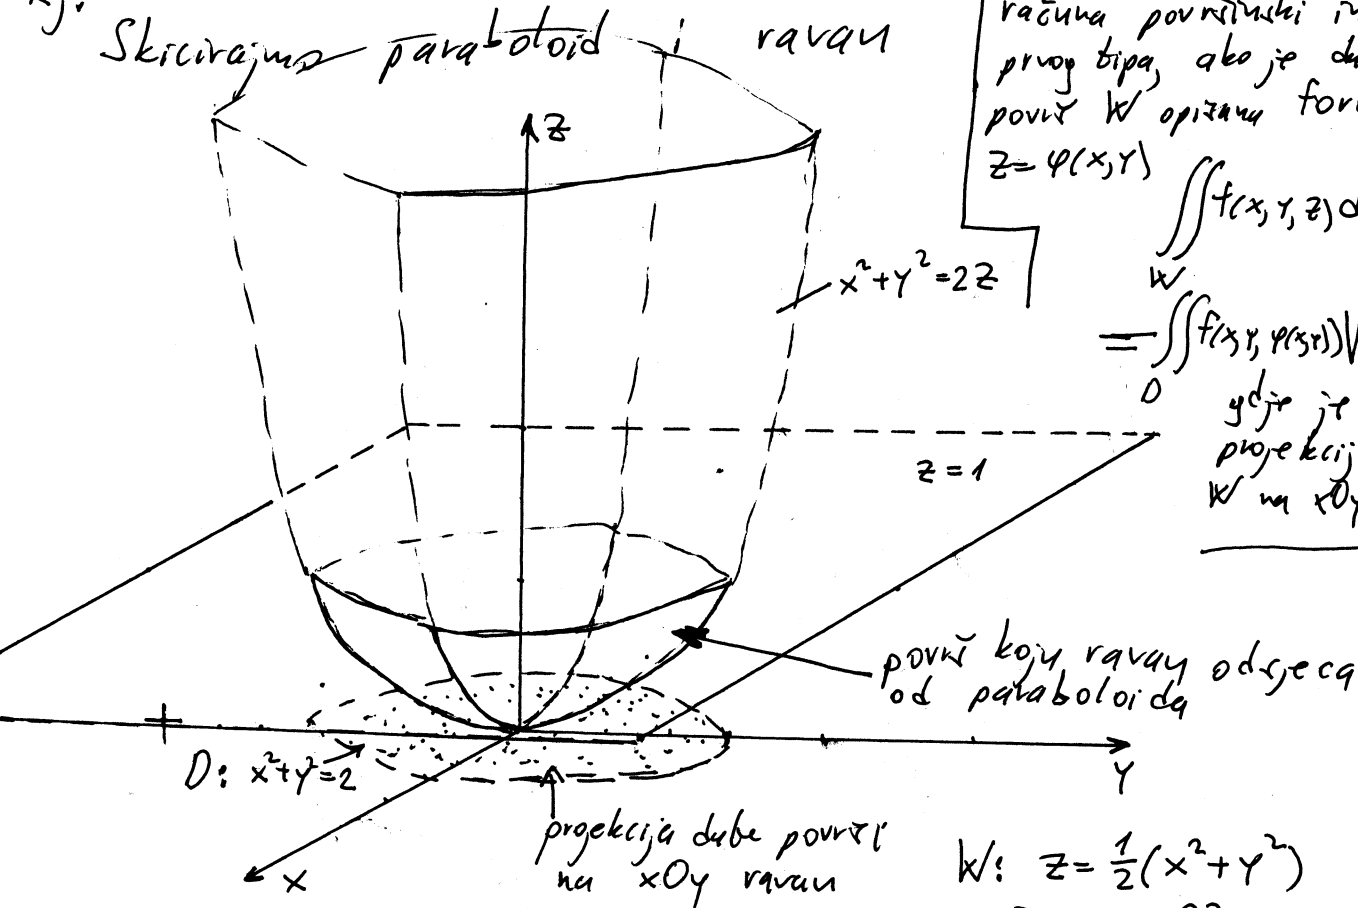 Rj.
Skicirajmo paraboloid i ravan
računa površinski in
prvog tipa, ako je da
površ W opisana for
z = φ(x,y)
∬f(x,y,z)d
W
= ∬f(x,y,φ(x,y))√
D
gdje je
projekcij
W na xOy
z
x²+y²=2z
z=1
površ koju ravan odsjeca
od paraboloida
D: x²+y²=2
y
projekcija date površi
na xOy ravan
x
W: z=½(x²+y²)